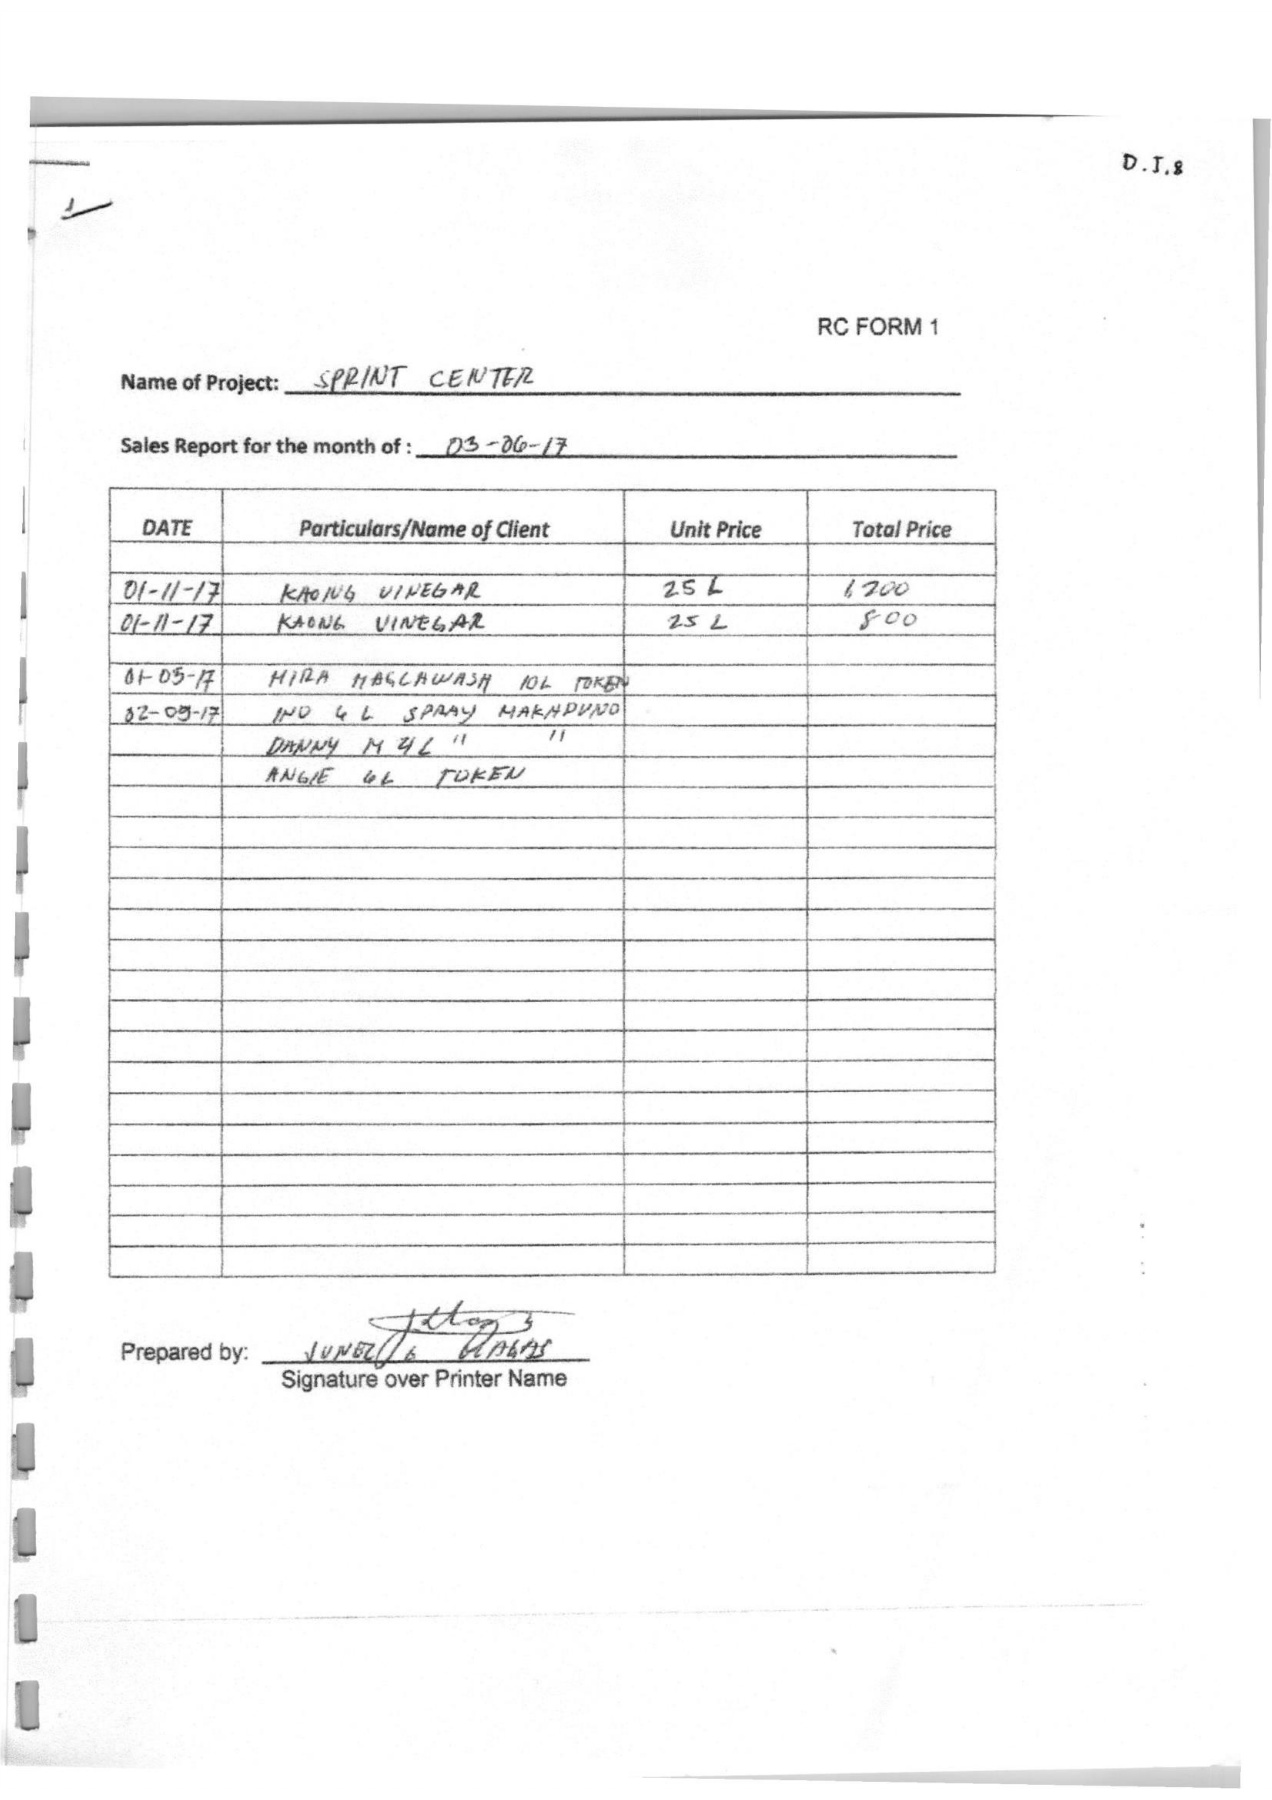 D.I.8
1
RC FORM 1
Name of Project: SPRINT CENTER
Sales Report for the month of : 03-06-17
DATE Particulars/Name of Client Unit Price Total Price
01-11-17 KAONG VINEGAR 25 L 1200
01-11-17 KAONG VINEGAR 25 L 800
01-05-17 MIRA 10L TOKEN
02-09-17 IND 4 L SPRAY MAKAPUNO
DANNY M 4L " "
ANGIE 4L TOKEN
Prepared by: JUNEL
Signature over Printer Name